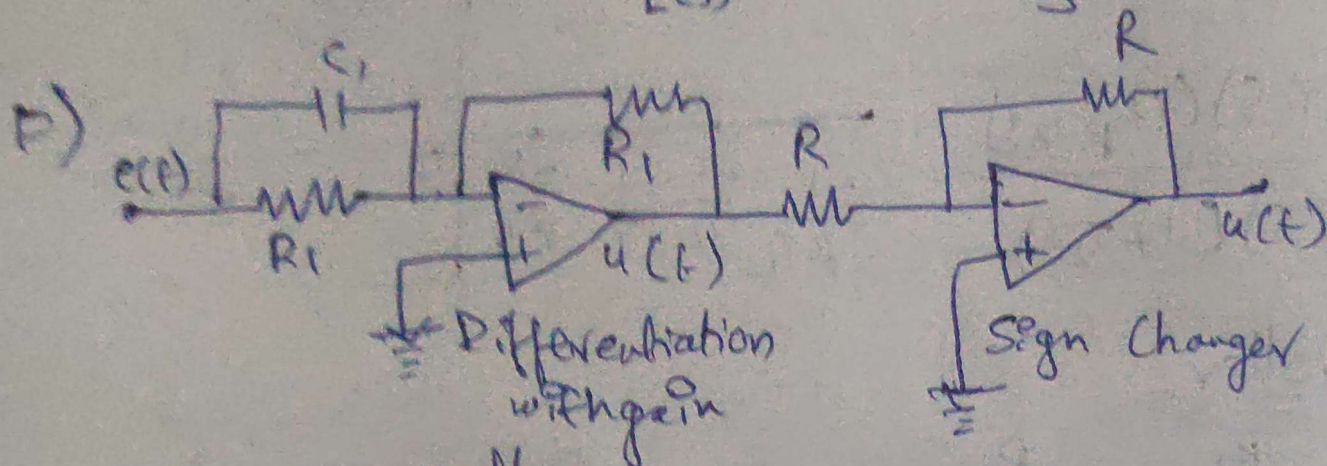 R
C1
F)
e(t)
R1
R
R1
-
-
+
+
u(t)
u(t)
Differentiation
with gain
Sign Changer